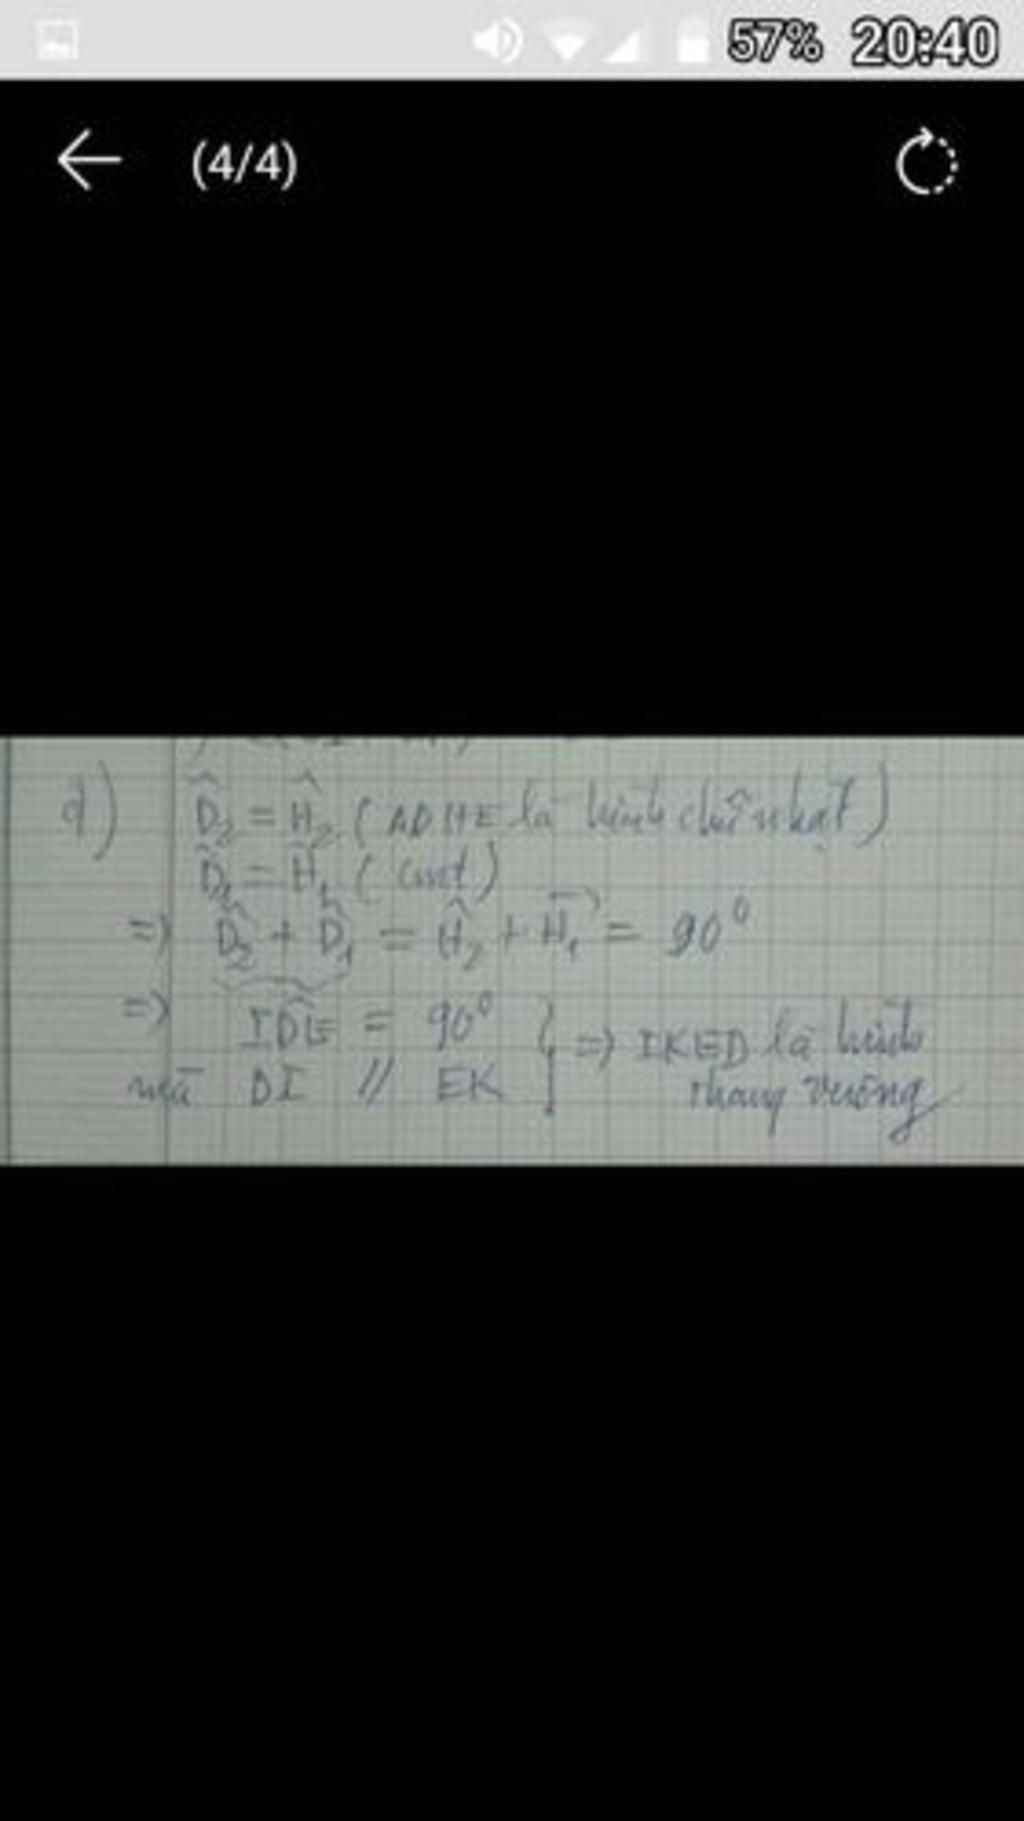 57% 20:40
(4/4)
d) D̂₂ = Ĥ₂ (ADHE là hình chữ nhật)
D̂₁ = Ĥ₁ (cmt)
=> D̂₂ + D̂₁ = Ĥ₂ + Ĥ₁ = 90⁰
=> ID̂E = 90⁰ } => IKED là hình
mà DI // EK thang vuông